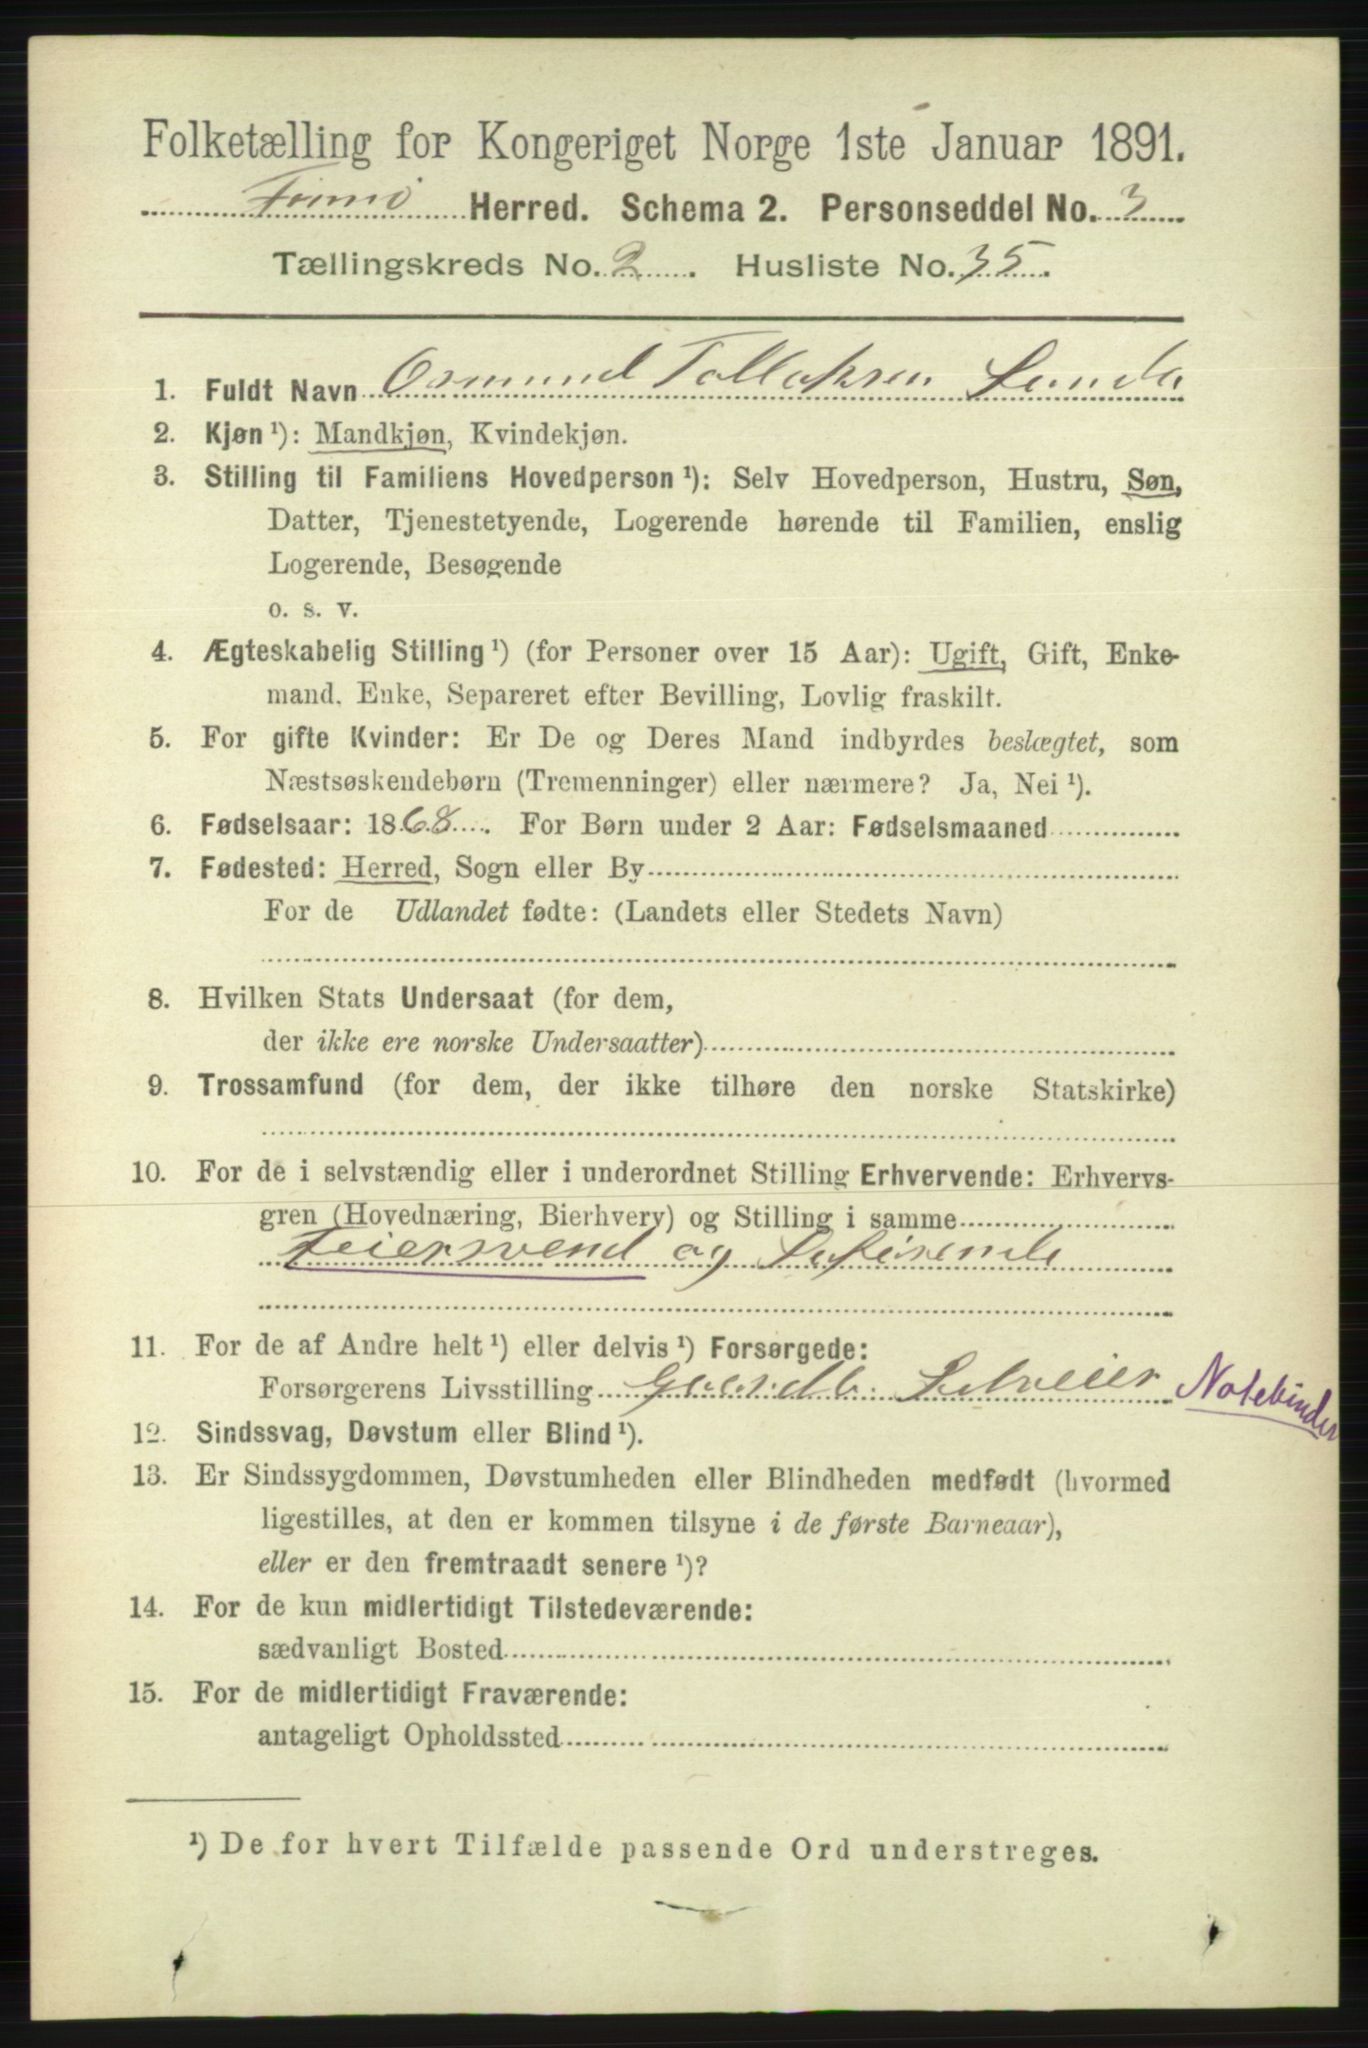 Folketælling for Kongeriget Norge 1ste Januar 1891.
Finnø Herred. Schema 2. Personseddel No. 3
Tællingskreds No. 2. Husliste No. 35.
1. Fuldt Navn Osmund Tollaksen
2. Kjøn ¹): Mandkjøn, Kvindekjøn.
3. Stilling til Familiens Hovedperson ¹): Selv Hovedperson, Hustru, Søn,
Datter, Tjenestetyende, Logerende hørende til Familien, enslig
Logerende, Besøgende
o. s. v.
4. Ægteskabelig Stilling ¹) (for Personer over 15 Aar): Ugift, Gift, Enke-
mand, Enke, Separeret efter Bevilling, Lovlig fraskilt.
5. For gifte Kvinder: Er De og Deres Mand indbyrdes beslægtet, som
Næstsøskendebørn (Tremenninger) eller nærmere? Ja, Nei ¹).
6. Fødselsaar: 1868. For Børn under 2 Aar: Fødselsmaaned
7. Fødested: Herred, Sogn eller By
For de Udlandet fødte: (Landets eller Stedets Navn)
8. Hvilken Stats Undersaat (for dem,
der ikke ere norske Undersaatter)
9. Trossamfund (for dem, der ikke tilhøre den norske Statskirke)
10. For de i selvstændig eller i underordnet Stilling Erhvervende: Erhvervs-
gren (Hovednæring, Bierhverv) og Stilling i samme
og
11. For de af Andre helt ¹) eller delvis ¹) Forsørgede:
Forsørgerens Livsstilling Gaardb. Selveier Notebinder
12. Sindssvag, Døvstum eller Blind ¹).
13. Er Sindssygdommen, Døvstumheden eller Blindheden medfødt (hvormed
ligestilles, at den er kommen tilsyne i de første Barneaar),
eller er den fremtraadt senere ¹)?
14. For de kun midlertidigt Tilstedeværende:
sædvanligt Bosted
15. For de midlertidigt Fraværende:
antageligt Opholdssted
¹) De for hvert Tilfælde passende Ord understreges.